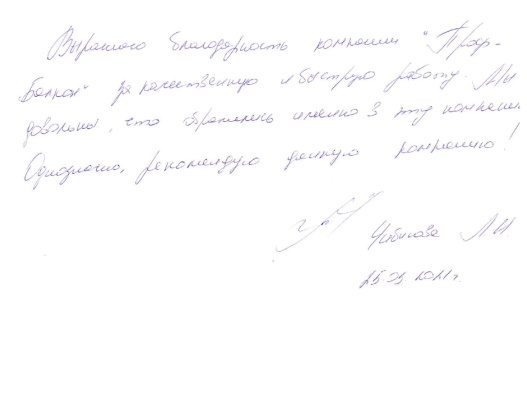 Выражаю благодарность компании "Проф-
Балкон" за качественную и быструю работу. Мы
довольны, что обратились именно в эту компанию
Однозначно, рекомендую данную компанию!
Л.И